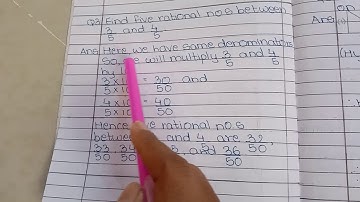 Q3 Find five rational no.s between
3/5 and 4/5
Ans Here, we have same denominators
So, we will multiply 3/5 and 4/5
by
3 × 10 = 30 and
5 × 10 50
4 × 10 = 40
5 × 10 50
Hence five rational no.s
between and 4 are 32/50,
33/50, 34/50, and 36/50